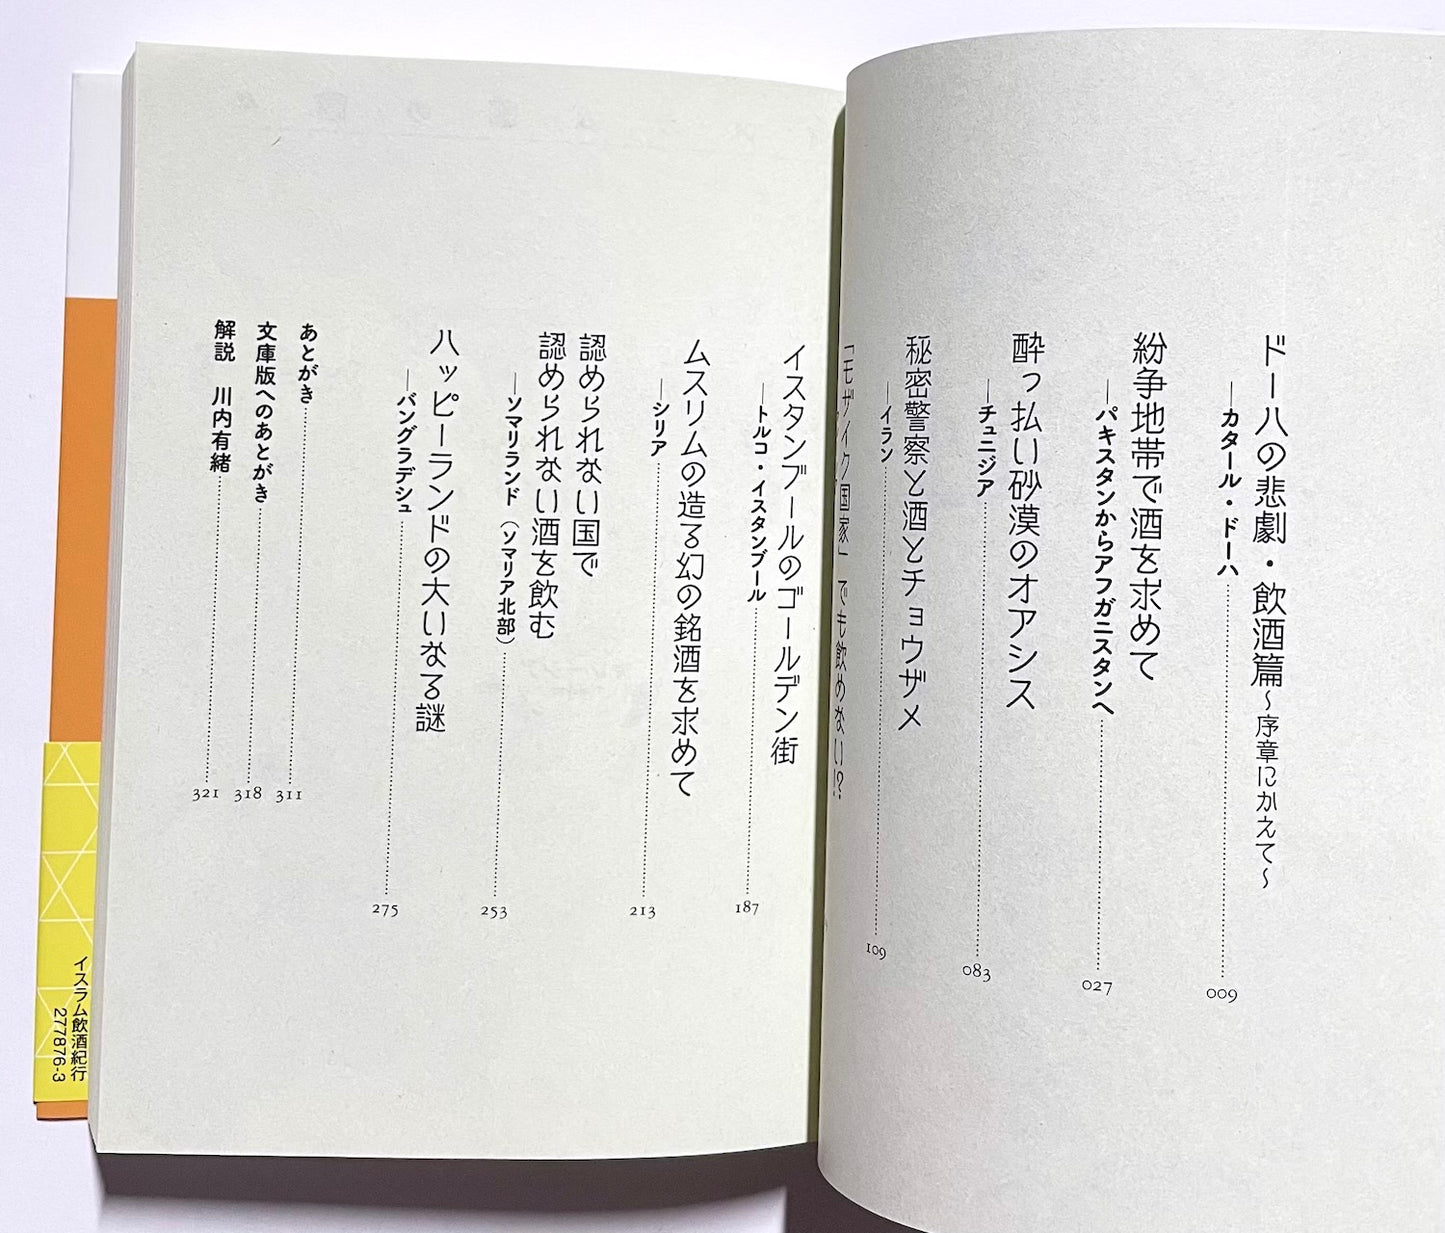 ドーハの悲劇・飲酒篇〜序章にかえて〜
―カタール・ドーハ……009
紛争地帯で酒を求めて
―パキスタンからアフガニスタンへ……027
酔っ払い砂漠のオアシス
―チュニジア……083
秘密警察と酒とチョウザメ
―イラン……109
「モザイク国家」でも飲めない!?
イスタンブールのゴールデン街
―トルコ・イスタンブール……187
ムスリムの造る幻の銘酒を求めて
―シリア……213
認められない国で
認められない酒を飲む
―ソマリランド（ソマリア北部）……253
ハッピーランドの大いなる謎
―バングラデシュ……275
あとがき……311
文庫版へのあとがき……318
解説　川内有緒……321
イスラム飲酒紀行
277876-3